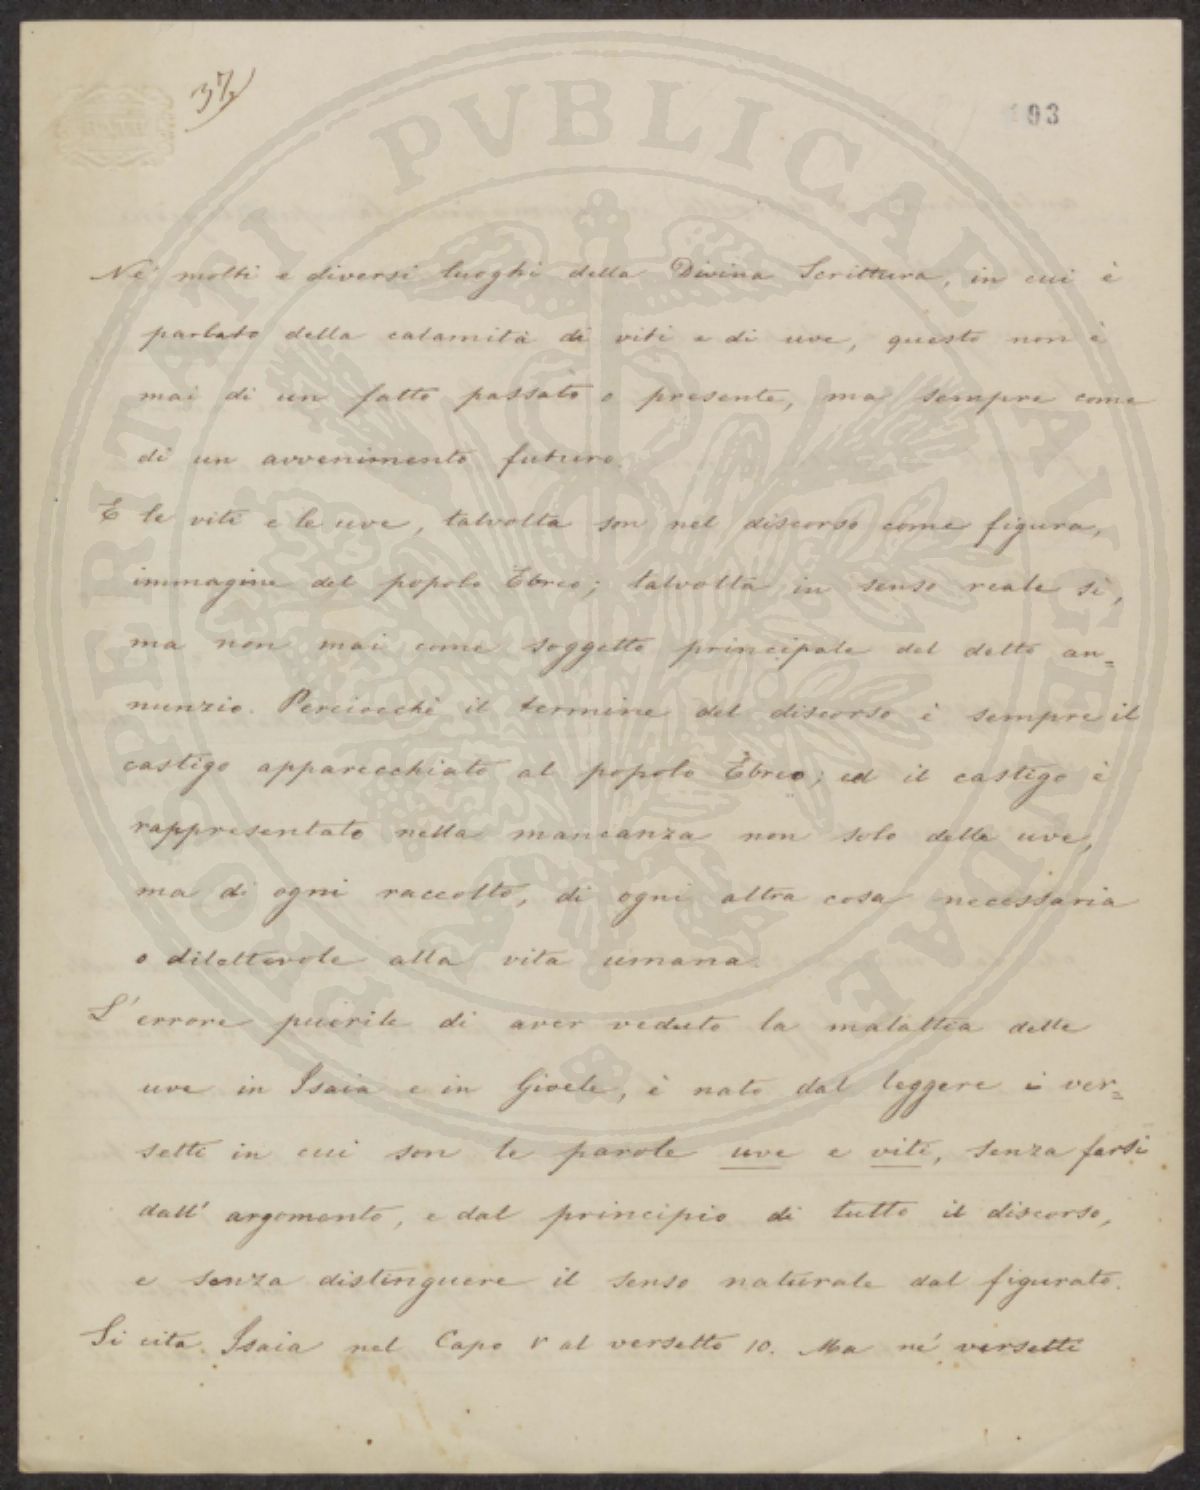 37
193
PROSPERITATI PVBLICAE AVGENDAE
Ne' molti e diversi luoghi della Divina Scrittura, in cui è
parlato della calamità di viti e di uve, questo non è
mai di un fatto passato o presente, ma sempre come
di un avvenimento futuro.
E le viti e le uve, talvolta son nel discorso come figura,
immagine del popolo Ebreo; talvolta in senso reale sì,
ma non mai come soggetto principale del detto an=
nunzio. Perciocchè il termine del discorso è sempre il
castigo apparecchiato al popolo Ebreo; ed il castigo è
rappresentato nella mancanza non solo delle uve,
ma di ogni raccolto, di ogni altra cosa necessaria
o dilettevole alla vita umana.
L'errore puerile di aver veduto la malattia delle
uve in Isaia e in Gioele, è nato dal leggere i ver=
setti in cui son le parole uve e viti, senza farsi
dall' argomento, e dal principio di tutto il discorso,
e senza distinguere il senso naturale dal figurato.
Si cita Isaia nel Capo V al versetto 10. Ma ne' versetti